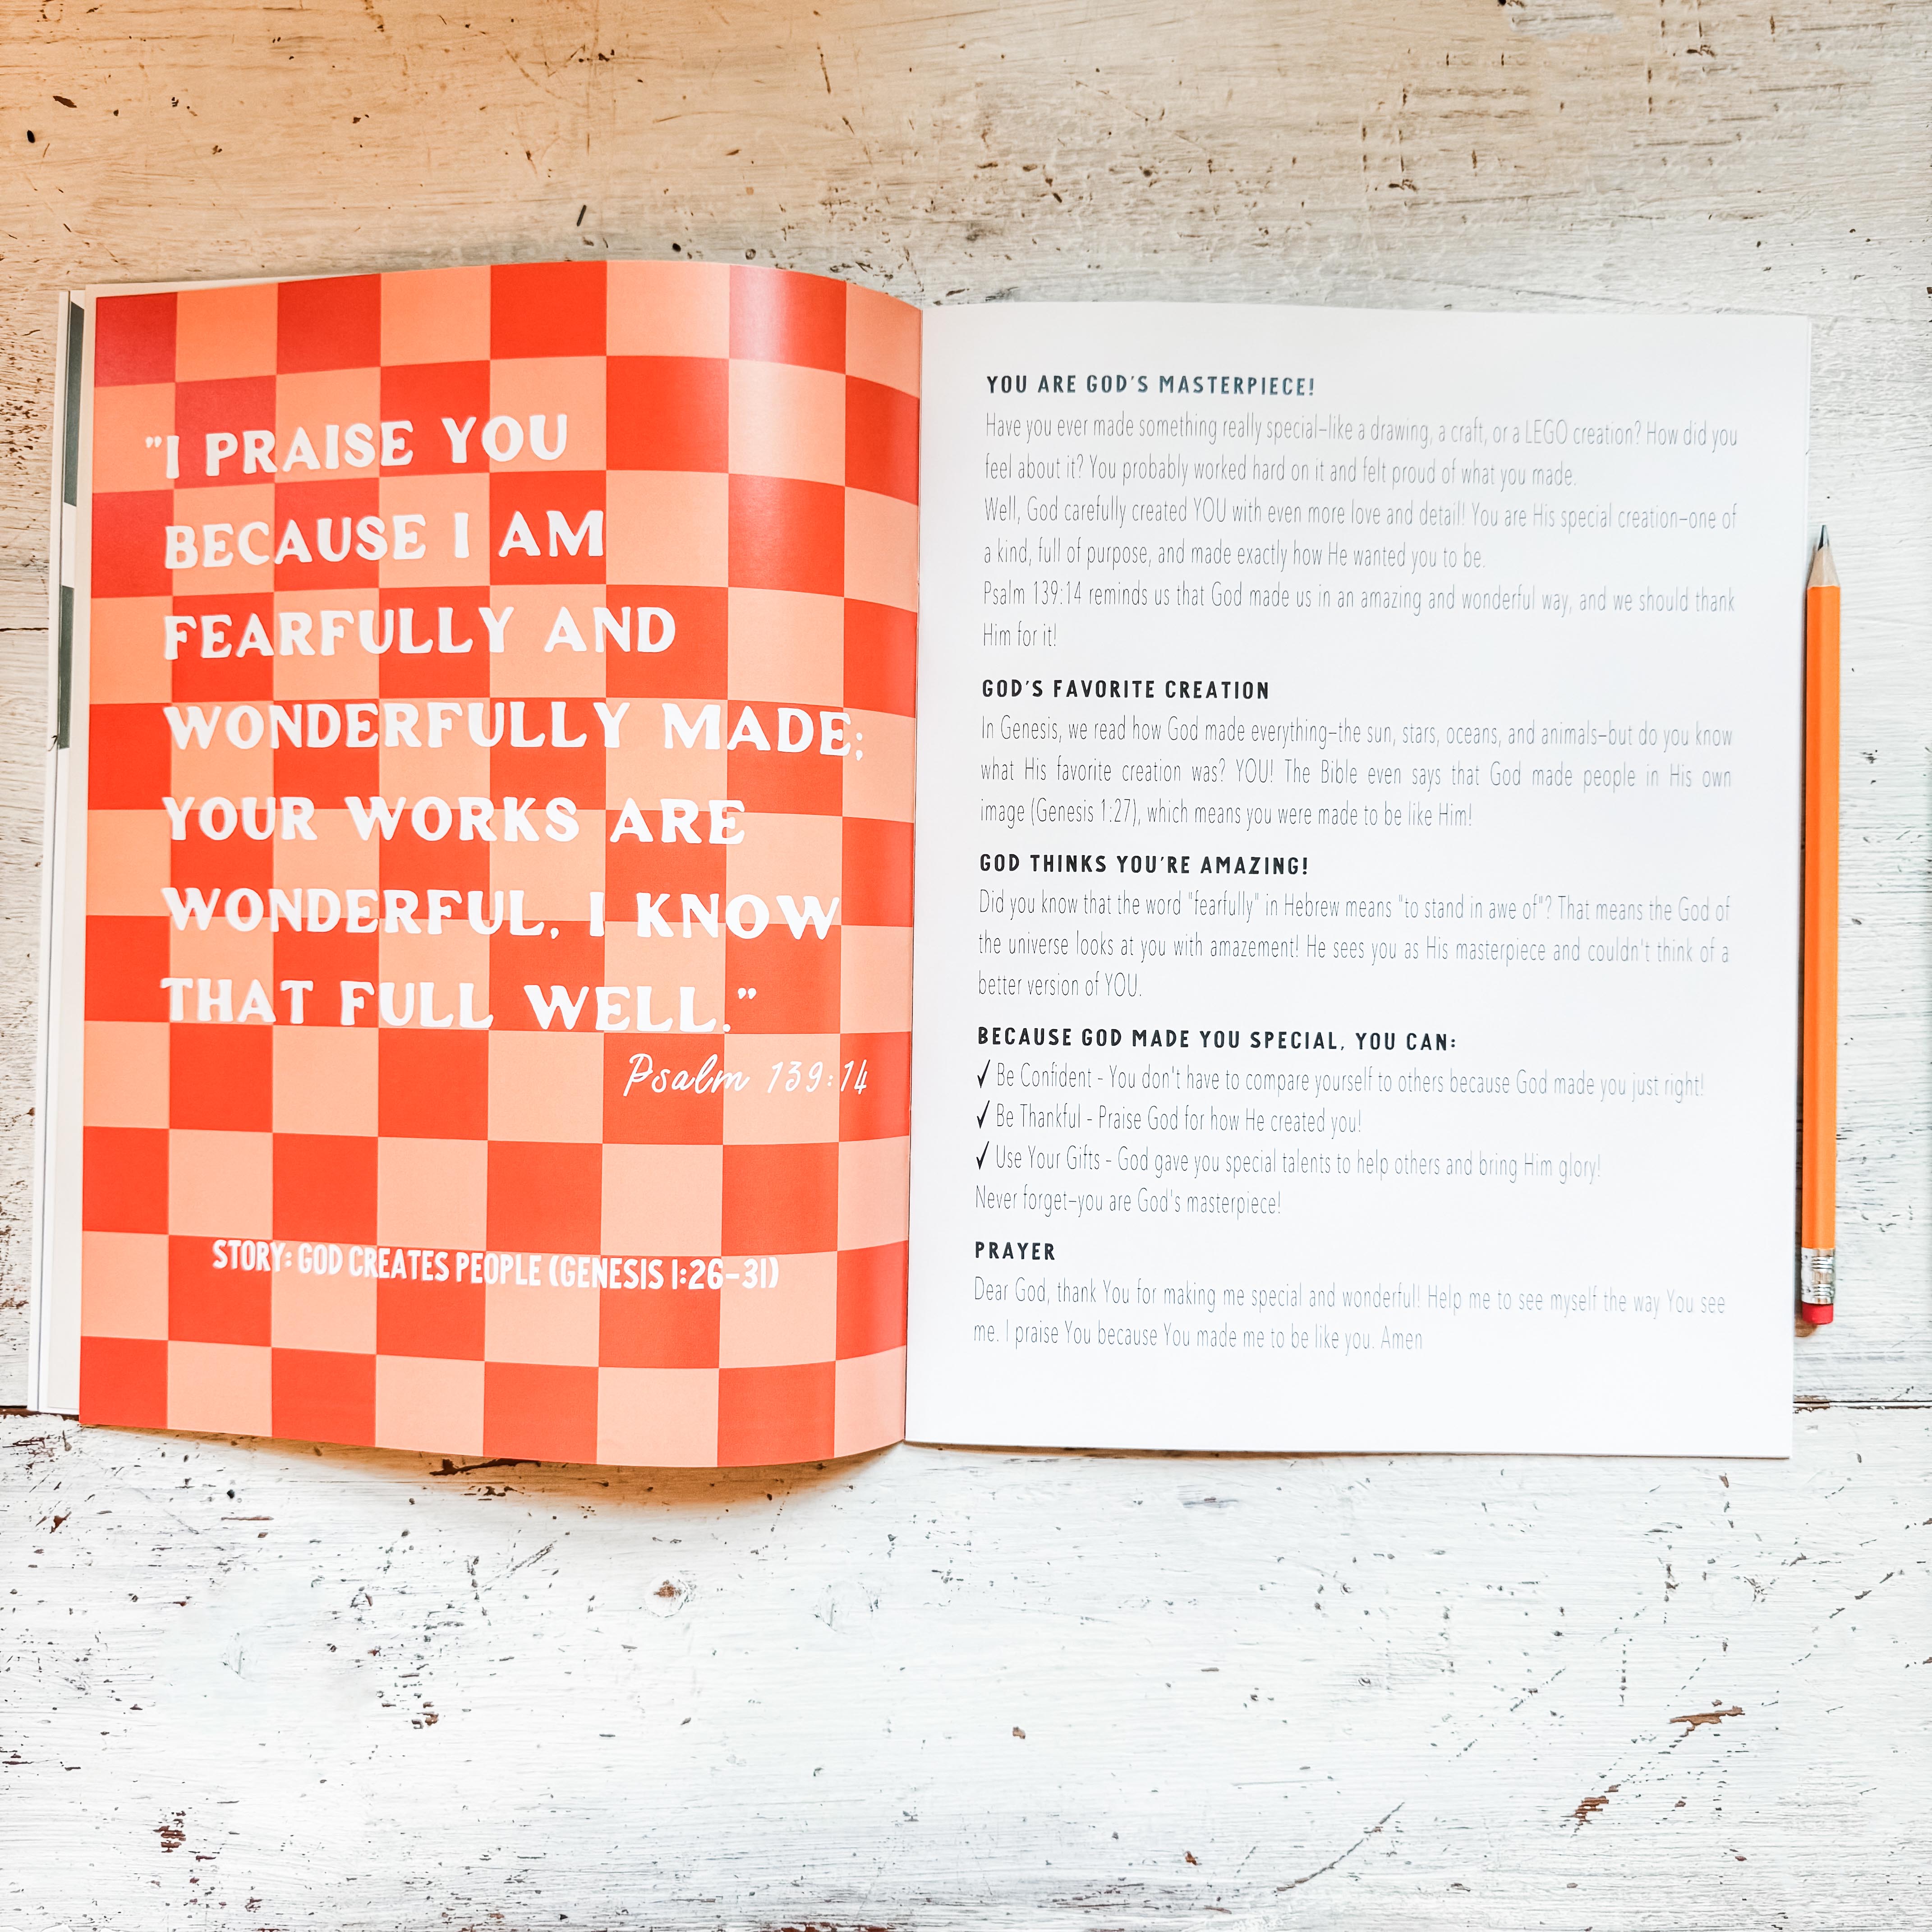 "I PRAISE YOU
BECAUSE I AM
FEARFULLY AND
WONDERFULLY MADE;
YOUR WORKS ARE
WONDERFUL, I KNOW
THAT FULL WELL."
Psalm 139:14
STORY: GOD CREATES PEOPLE (GENESIS 1:26-31)
YOU ARE GOD'S MASTERPIECE!
Have you ever made something really special–like a drawing, a craft, or a LEGO creation? How did you
feel about it? You probably worked hard on it and felt proud of what you made.
Well, God carefully created YOU with even more love and detail! You are His special creation–one of
a kind, full of purpose, and made exactly how He wanted you to be.
Psalm 139:14 reminds us that God made us in an amazing and wonderful way, and we should thank
Him for it!
GOD'S FAVORITE CREATION
In Genesis, we read how God made everything–the sun, stars, oceans, and animals–but do you know
what His favorite creation was? YOU! The Bible even says that God made people in His own
image (Genesis 1:27), which means you were made to be like Him!
GOD THINKS YOU'RE AMAZING!
Did you know that the word "fearfully" in Hebrew means "to stand in awe of"? That means the God of
the universe looks at you with amazement! He sees you as His masterpiece and couldn't think of a
better version of YOU.
BECAUSE GOD MADE YOU SPECIAL, YOU CAN:
✓ Be Confident - You don't have to compare yourself to others because God made you just right!
✓ Be Thankful - Praise God for how He created you!
✓ Use Your Gifts - God gave you special talents to help others and bring Him glory!
Never forget–you are God's masterpiece!
PRAYER
Dear God, thank You for making me special and wonderful! Help me to see myself the way You see
me. I praise You because You made me to be like you. Amen